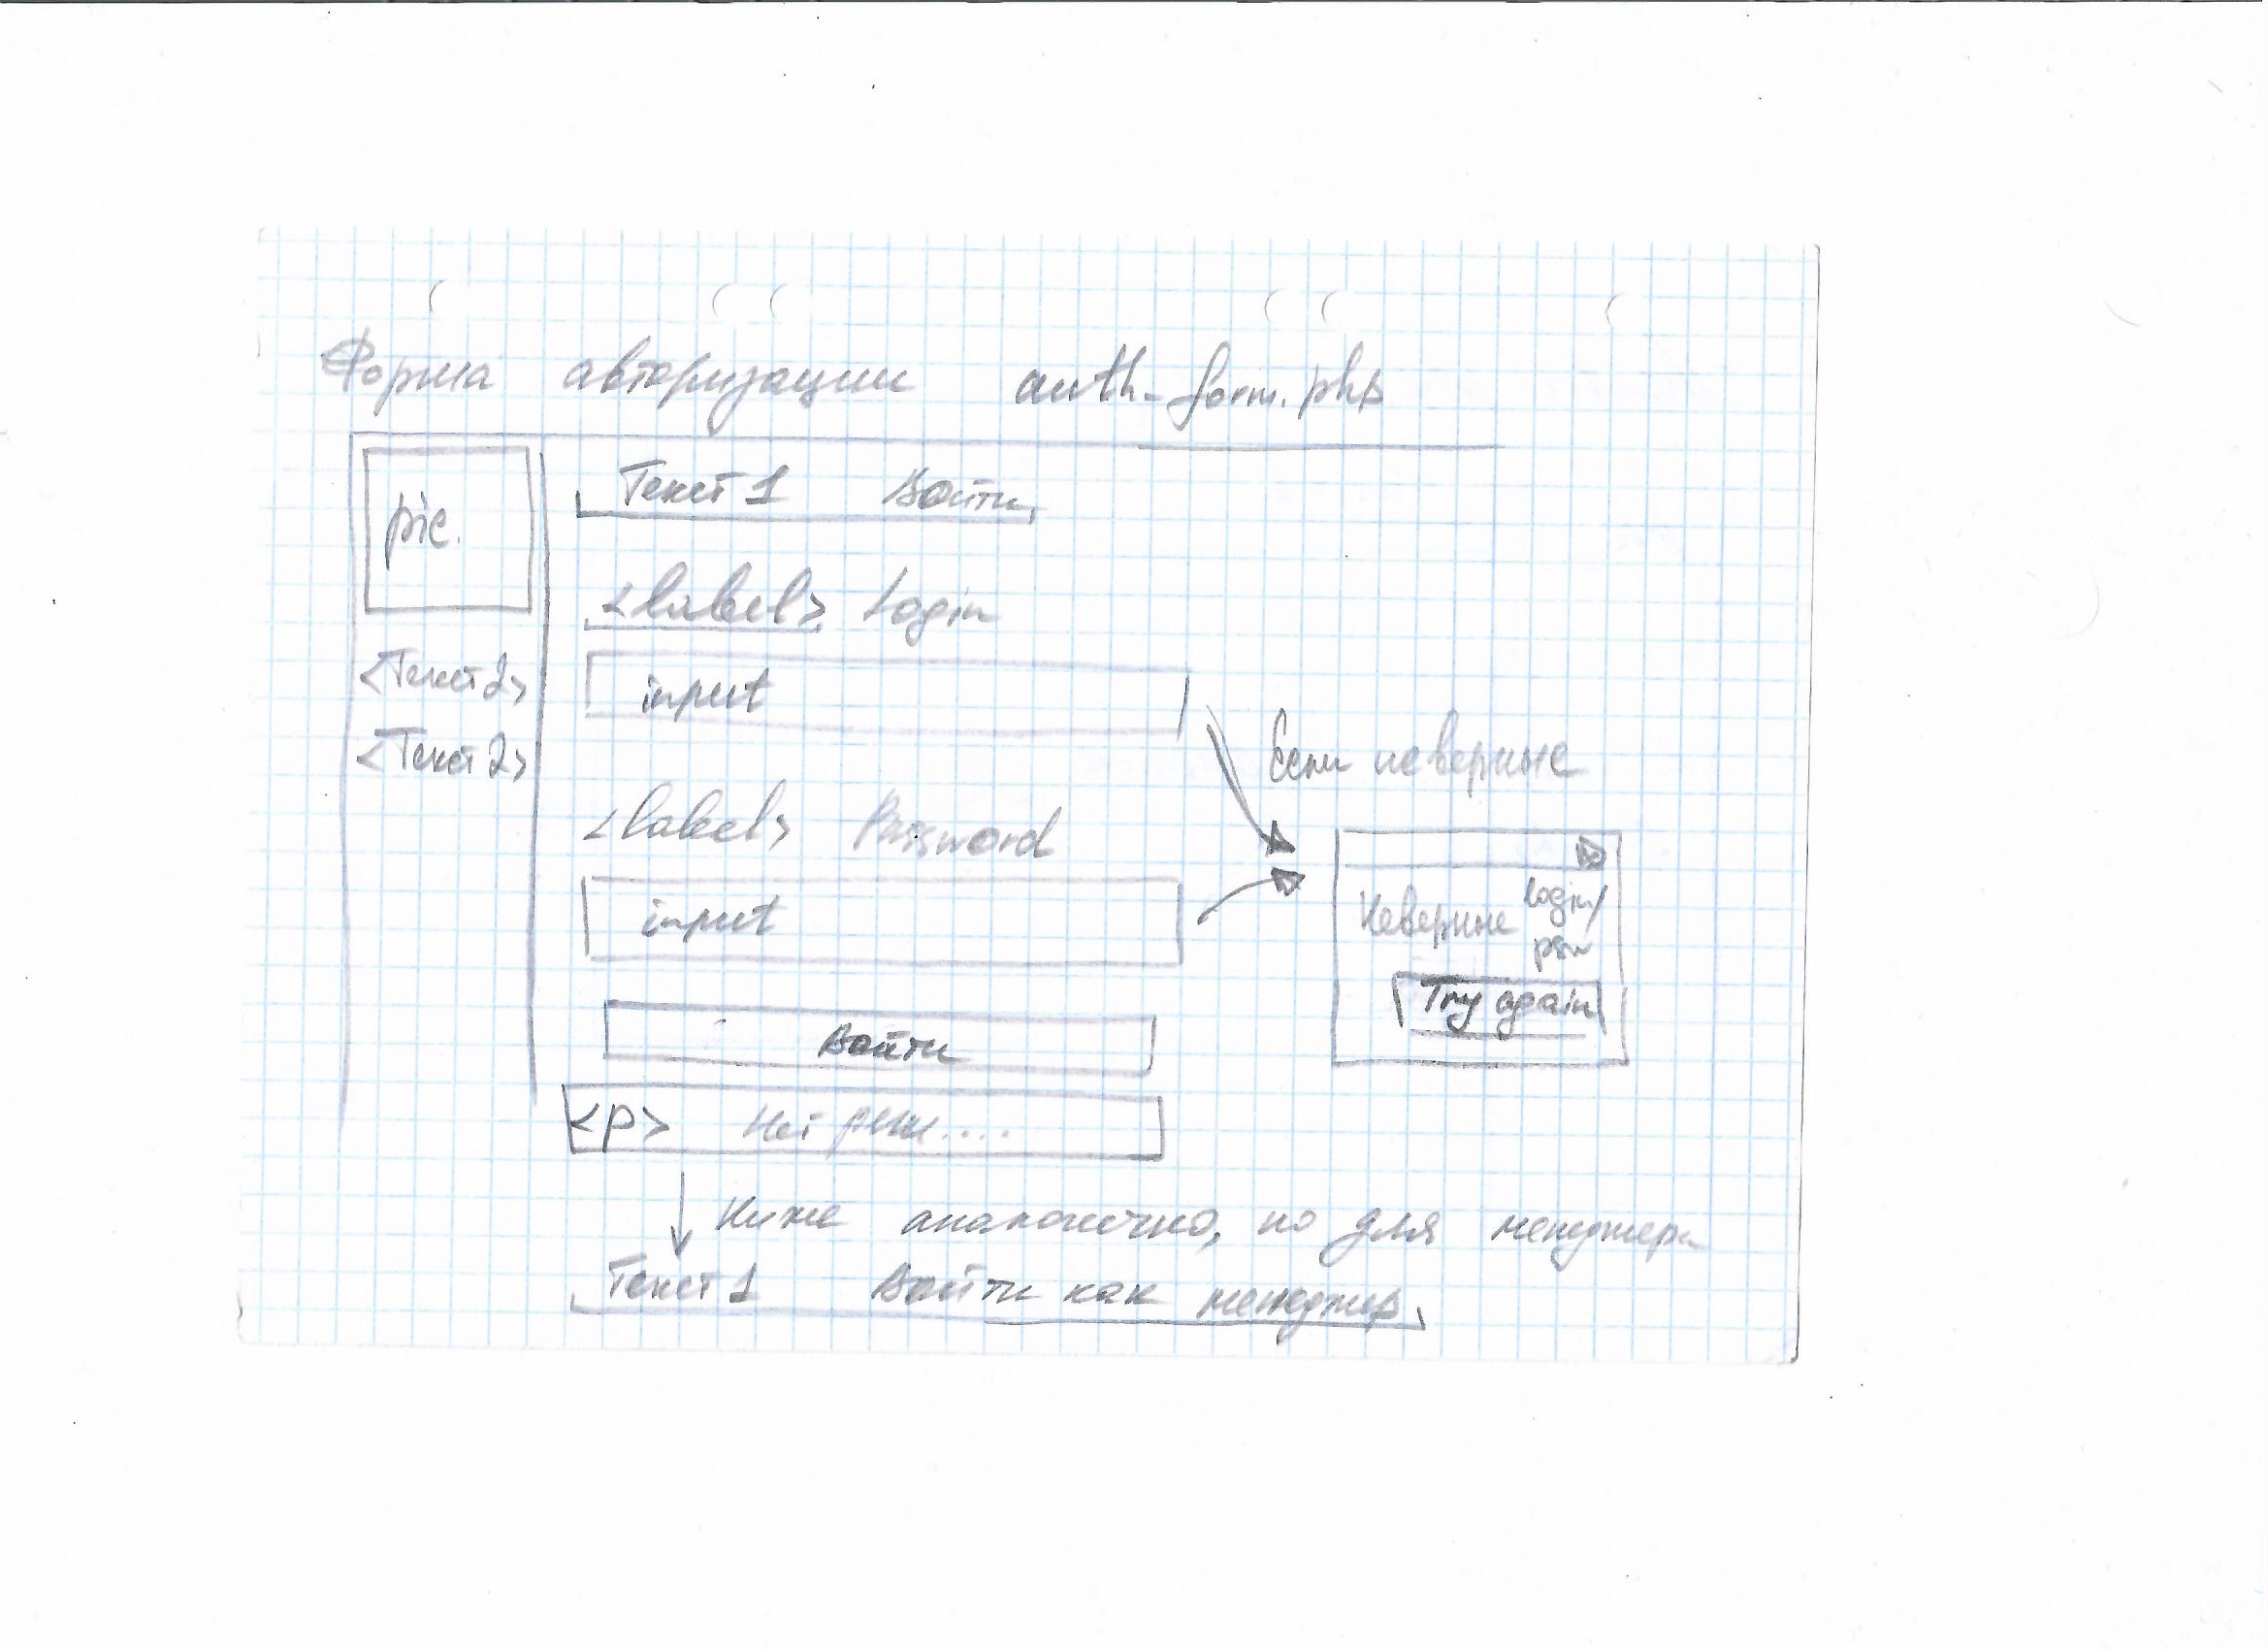 Форма авторизации auth_form.php
pic.
<Текст2>
<Текст2>
Текст 1 Войти
<label> Login
input
<label> Password
input
Войти
<p> Нет реги....
Если неверные
Неверные login/
psw
Try again
Ниже аналогично, но для менеджера
Текст 1 Войти как менеджер